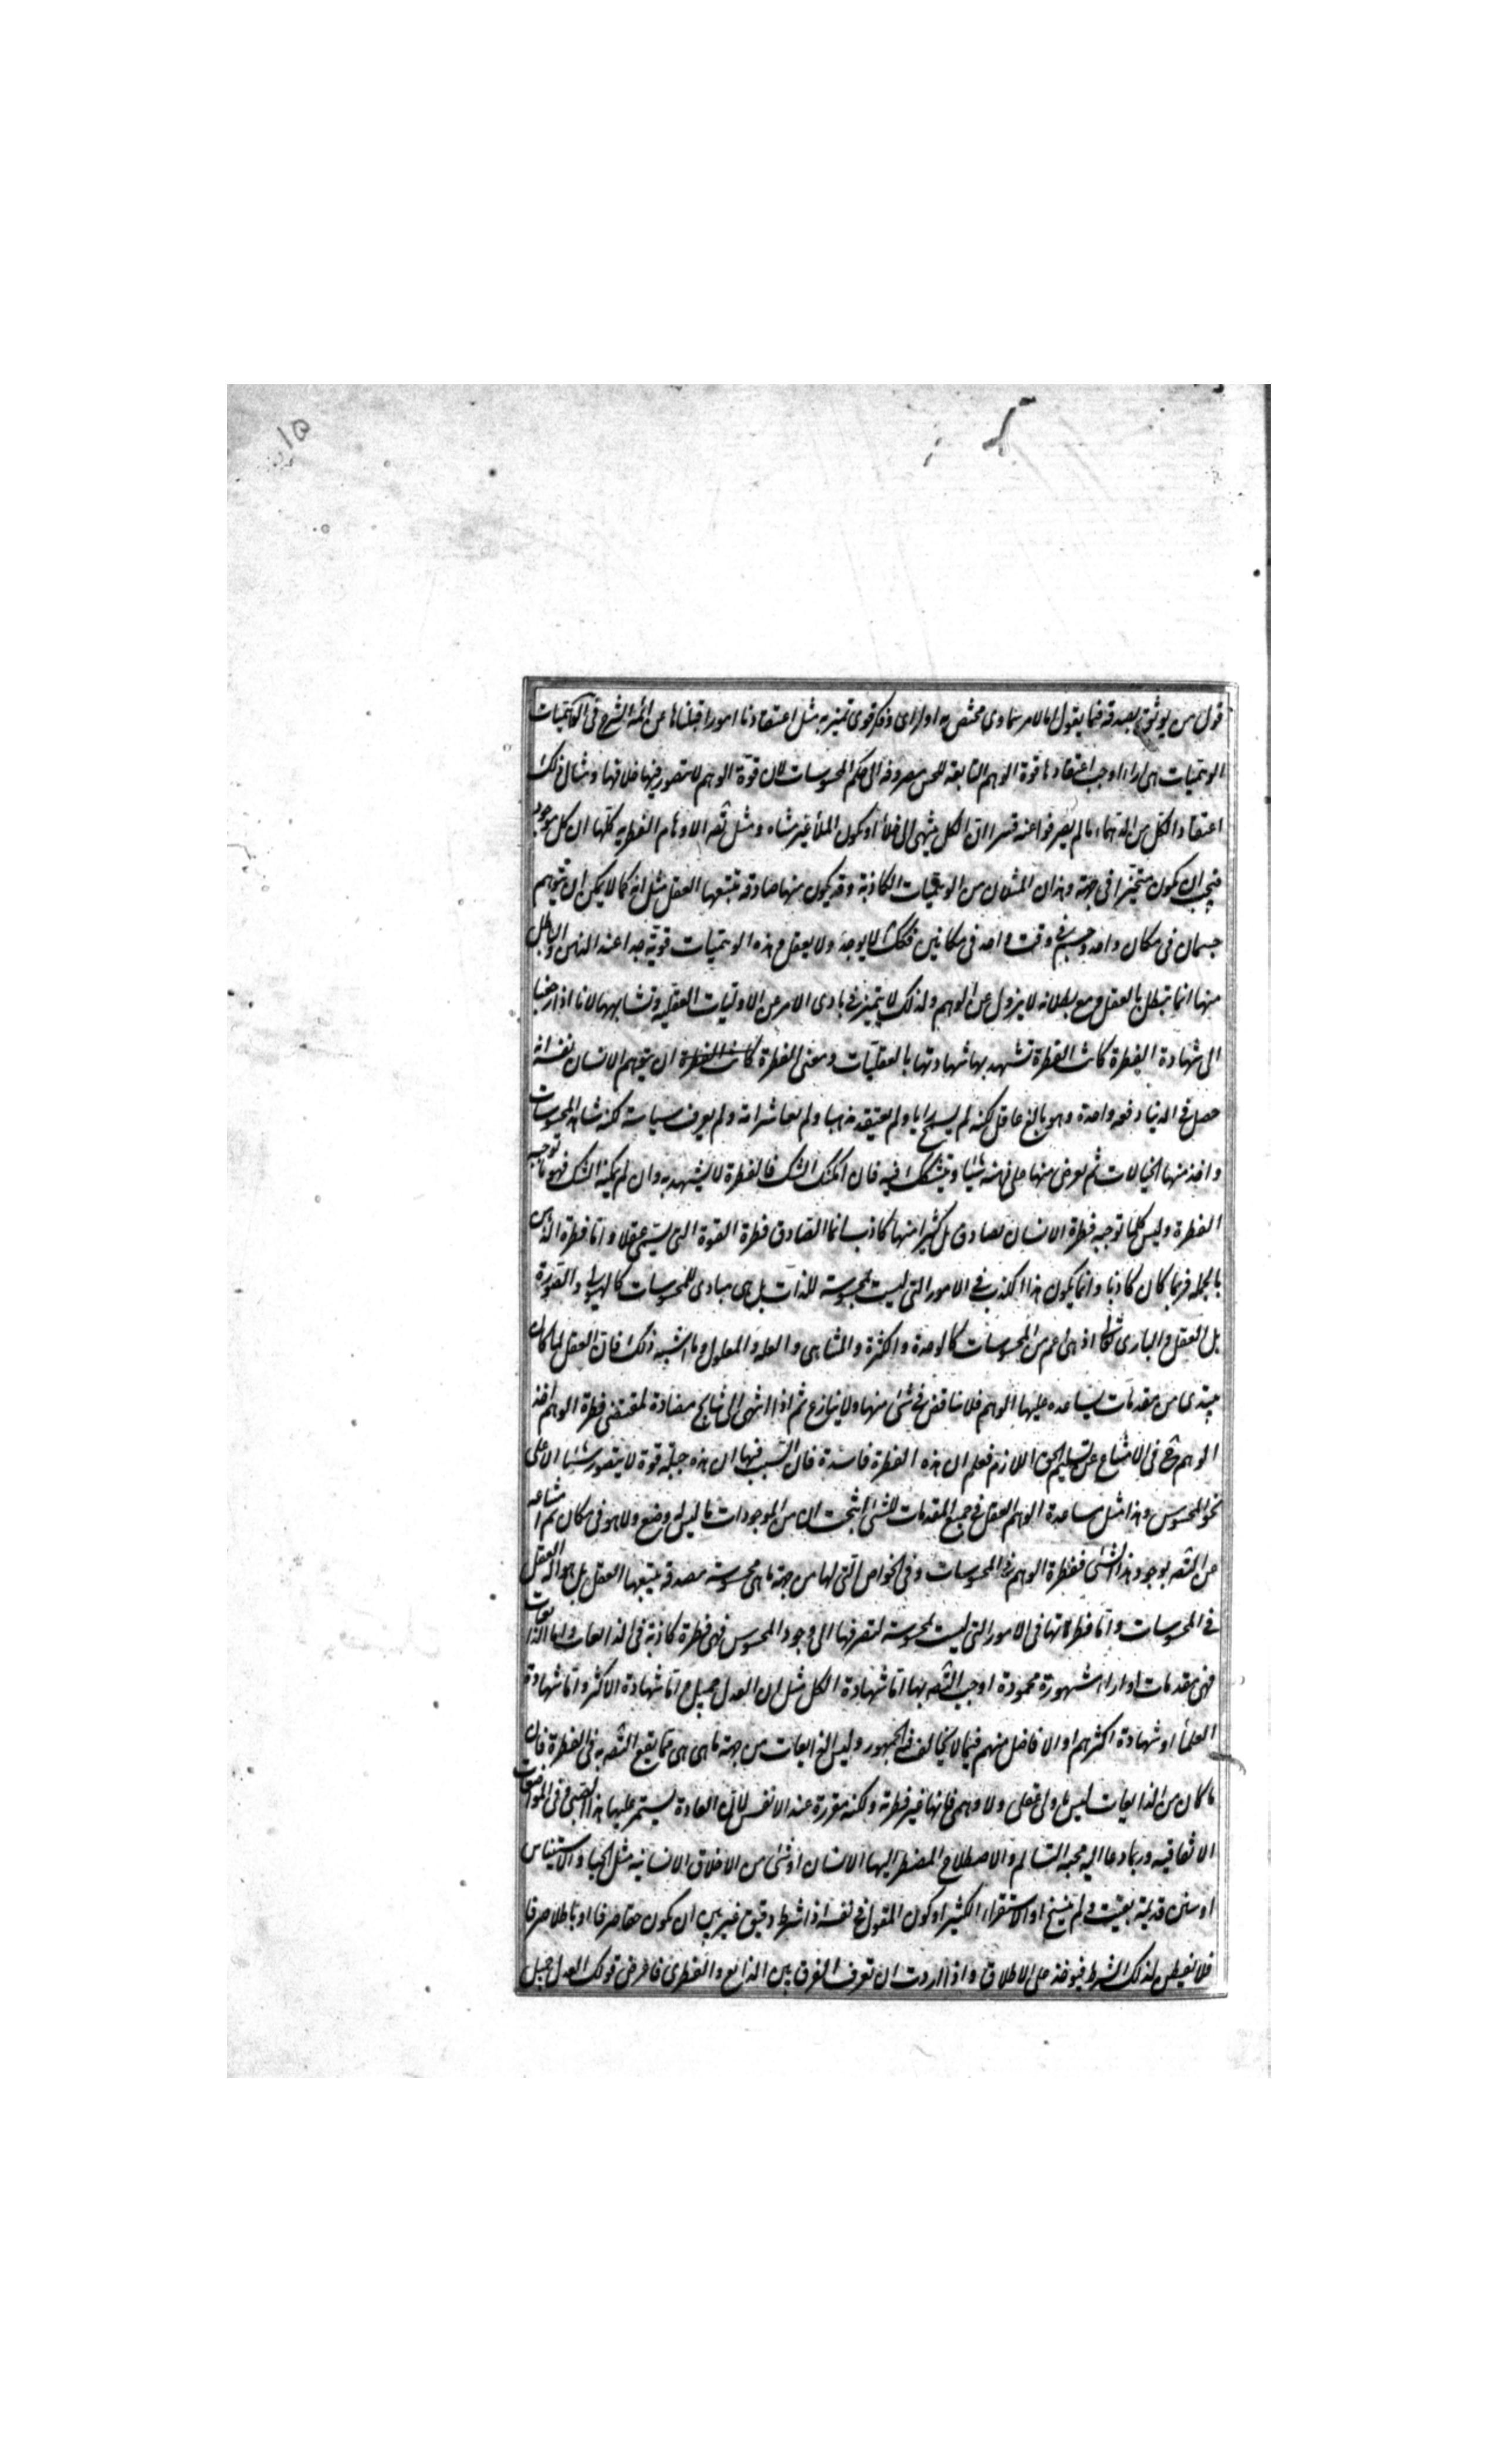 ١٥
قول من يوثق بصدقه فيما يقول اما لامر سماوى مختص به او لراى وفكر قوى تميز به مثل اعتقادنا امورا قبلناها عن ائمة الشرع فى الكائنات
الوهميات هى اراء اوجب اعتقادها قوة الوهم التابعة للحس مصروفة الى حكم المحسوسات لان قوة الوهم لا يتصور فيها خلافها ومثال ذلك
اعتقاد الكل من الدهماء ما لم يصرفوا عنه قسرا ان الكل ينتهى الى خلأ او يكون الملأ غير متناه ومثل تصديق الاوهام الفطرية كلها ان كل موجود
فيجب ان يكون متحيزا فى جهة وهذان المثالان من الوهميات الكاذبة وقد يكون منها صادقة يتبعها العقل مثل انه كما لا يمكن ان يتوهم
جسمان فى مكان واحد وجسم فى وقت واحد فى مكانين فكذلك لا يوجد ولا يعقل وهذه الوهميات قوية جدا عند الذهن والباطل
منها انما تبطل بالعقل ومع بطلانه لا يزول عن الوهم ولذلك لا يتميز فى بادى الامر عن الاوليات العقلية وتشابهها لانا اذا رجعنا
الى شهادة الفطرة كانت الفطرة تشهد بها شهادتها بالعقليات ومعنى الفطرة كانت الفطرة ان يتوهم الانسان نفسه انه
حصل فى الدنيا دفعة واحدة وهو بالغ عاقل لكنه لم يسمع رايا ولم يعتقد مذهبا ولم يعاشر امة ولم يعرف سياسة لكنه شاهد المحسوسات
واخذ منها الخيالات ثم يعرض منها على ذهنه شيئا ويتشكك فيه فان امكنك الشك فالفطرة لا يشهد به وان لم يمكنه الشك فهو ما توجبه
الفطرة وليس كلما توجبه فطرة الانسان بصادق بل كثير منها كاذب انما الصادق فطرة القوة التى يسمى عقلا واما فطرة الذهن
بالجملة فربما كان كاذبا وانما يكون هذا الكذب فى الامور التى ليست بمحسوسة للذات بل هى مبادى للمحسوسات كالهيولى والصورة
بل العقل والبارى تعالى اذ هى اعم من المحسوسات كالوحدة والكثرة والتناهى والعلة والمعلول وما اشبه ذلك فان العقل لما كان
يبتدى من مقدمات يساعده عليها الوهم فلا يناقض فى شئ منها ولا ينازع ثم اذا انتهى الى نتايج مضادة لمقتضى فطرة الوهم اخذ
الوهم ح فى الامتناع عن تسليم الحق اللازم فعلم ان هذه الفطرة فاسدة فان السبب فيها ان هذه جبلة قوة لا يتصور شيئا الا على
نحو المحسوس وهذا مثل مساعدة الوهم العقل فى جميع المقدمات التى انتجت ان من الموجودات ما ليس له وضع ولا هو فى مكان ثم امتناعه
عن التصديق بوجود هذا الشئ ففطرة الوهم فى المحسوسات وفى الخواص التى لها من جهة ما هى محسوسة مصدقة يتبعها العقل بل هو الة العقل
فى المحسوسات واما فطرتها فى الامور التى ليست بمحسوسة لتصرفها الى وجود المحسوس فهى فطرة كاذبة فى الذايعات واما الذايعات
فهى مقدمات او اراء مشهورة محمودة اوجب التصديق بها اما شهادة الكل مثل ان العدل جميل واما شهادة الاكثر واما شهادة
العلماء او شهادة اكثرهم او الافاضل منهم فيما لا يخالف فيه الجمهور وليس الذايعات من جهة ما هى هى مما يقع التصديق به فى الفطرة فان
ما كان من الذايعات ليس باولى عقلى ولا وهمى فانها غير فطرية ولكنه مقررة عند الانفس لان العادة يستمر عليها هذا الصبى فى المواضعات
الاتفاقية وربما دعا اليه محبة التسالم والاصطلاح المضطر اليها الانسان او شئ من الاخلاق الانسانية مثل الحياء والاستيناس
او سنن قديمة بقيت ولم ينسخ او الاستقراء الكثير او كون المقول فى نفسه ذا شرط دقيق غير بين ان يكون حقا صرفا او باطلا صرفا
فلا تفطن لذلك الشرط فيوخذ على الاطلاق واذا اردت ان تعرف الفرق بين الذايع والفطرى فاعرض قولك العدل جميل